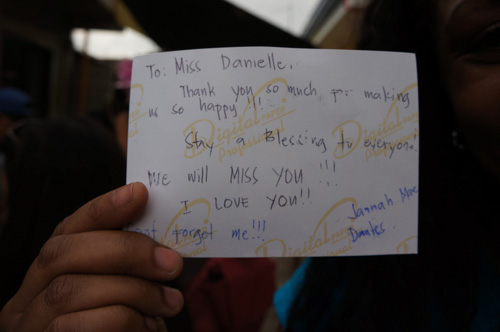 To: Miss Danielle.
Thank you so much for making
us so happy!!!
Stay a Blessing to everyone!
We will MISS YOU !!!
I LOVE YOU!!
Jannah Mae
forget me!!!
Digital
Professional
Digital
Professional
Digital
Digital